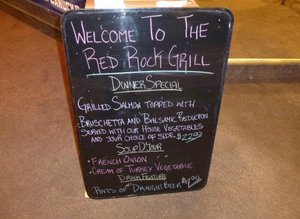 Welcome To The
Red Rock Grill
Dinner Special
Grilled Salmon topped with
Bruschetta and Balsamic Reduction
Served with our House Vegetables
and your choice of side
Soup D'Jour
French Onion
Cream of Turkey Vegetable
Drink Feature
Pints of Draught Beer